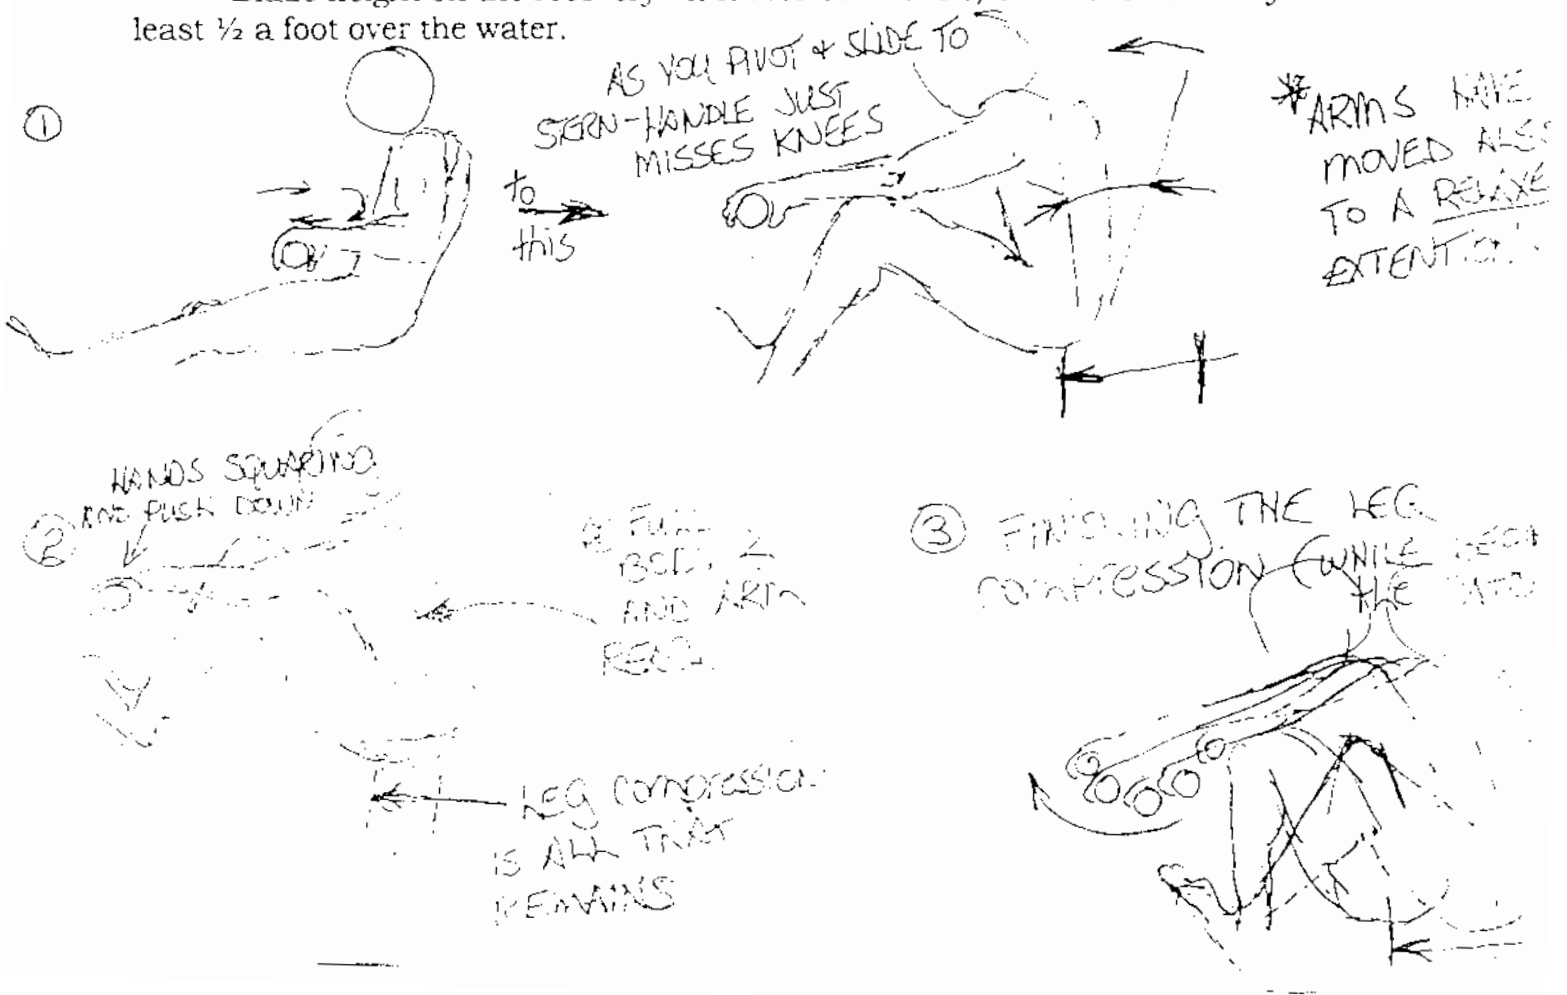 least ½ a foot over the water.
①
AS YOU PIVOT & SLIDE TO
STERN-HANDLE JUST
MISSES KNEES
to
this
*ARMS HAVE
MOVED ALSO
TO A RELAXE
EXTENTION
②
HANDS SQUARING
AND PUSH DOWN
AND ARM
LEG COMPRESSION
IS ALL THAT
REMAINS
③
FINISHING THE LEG
COMPRESSION (WHILE
THE